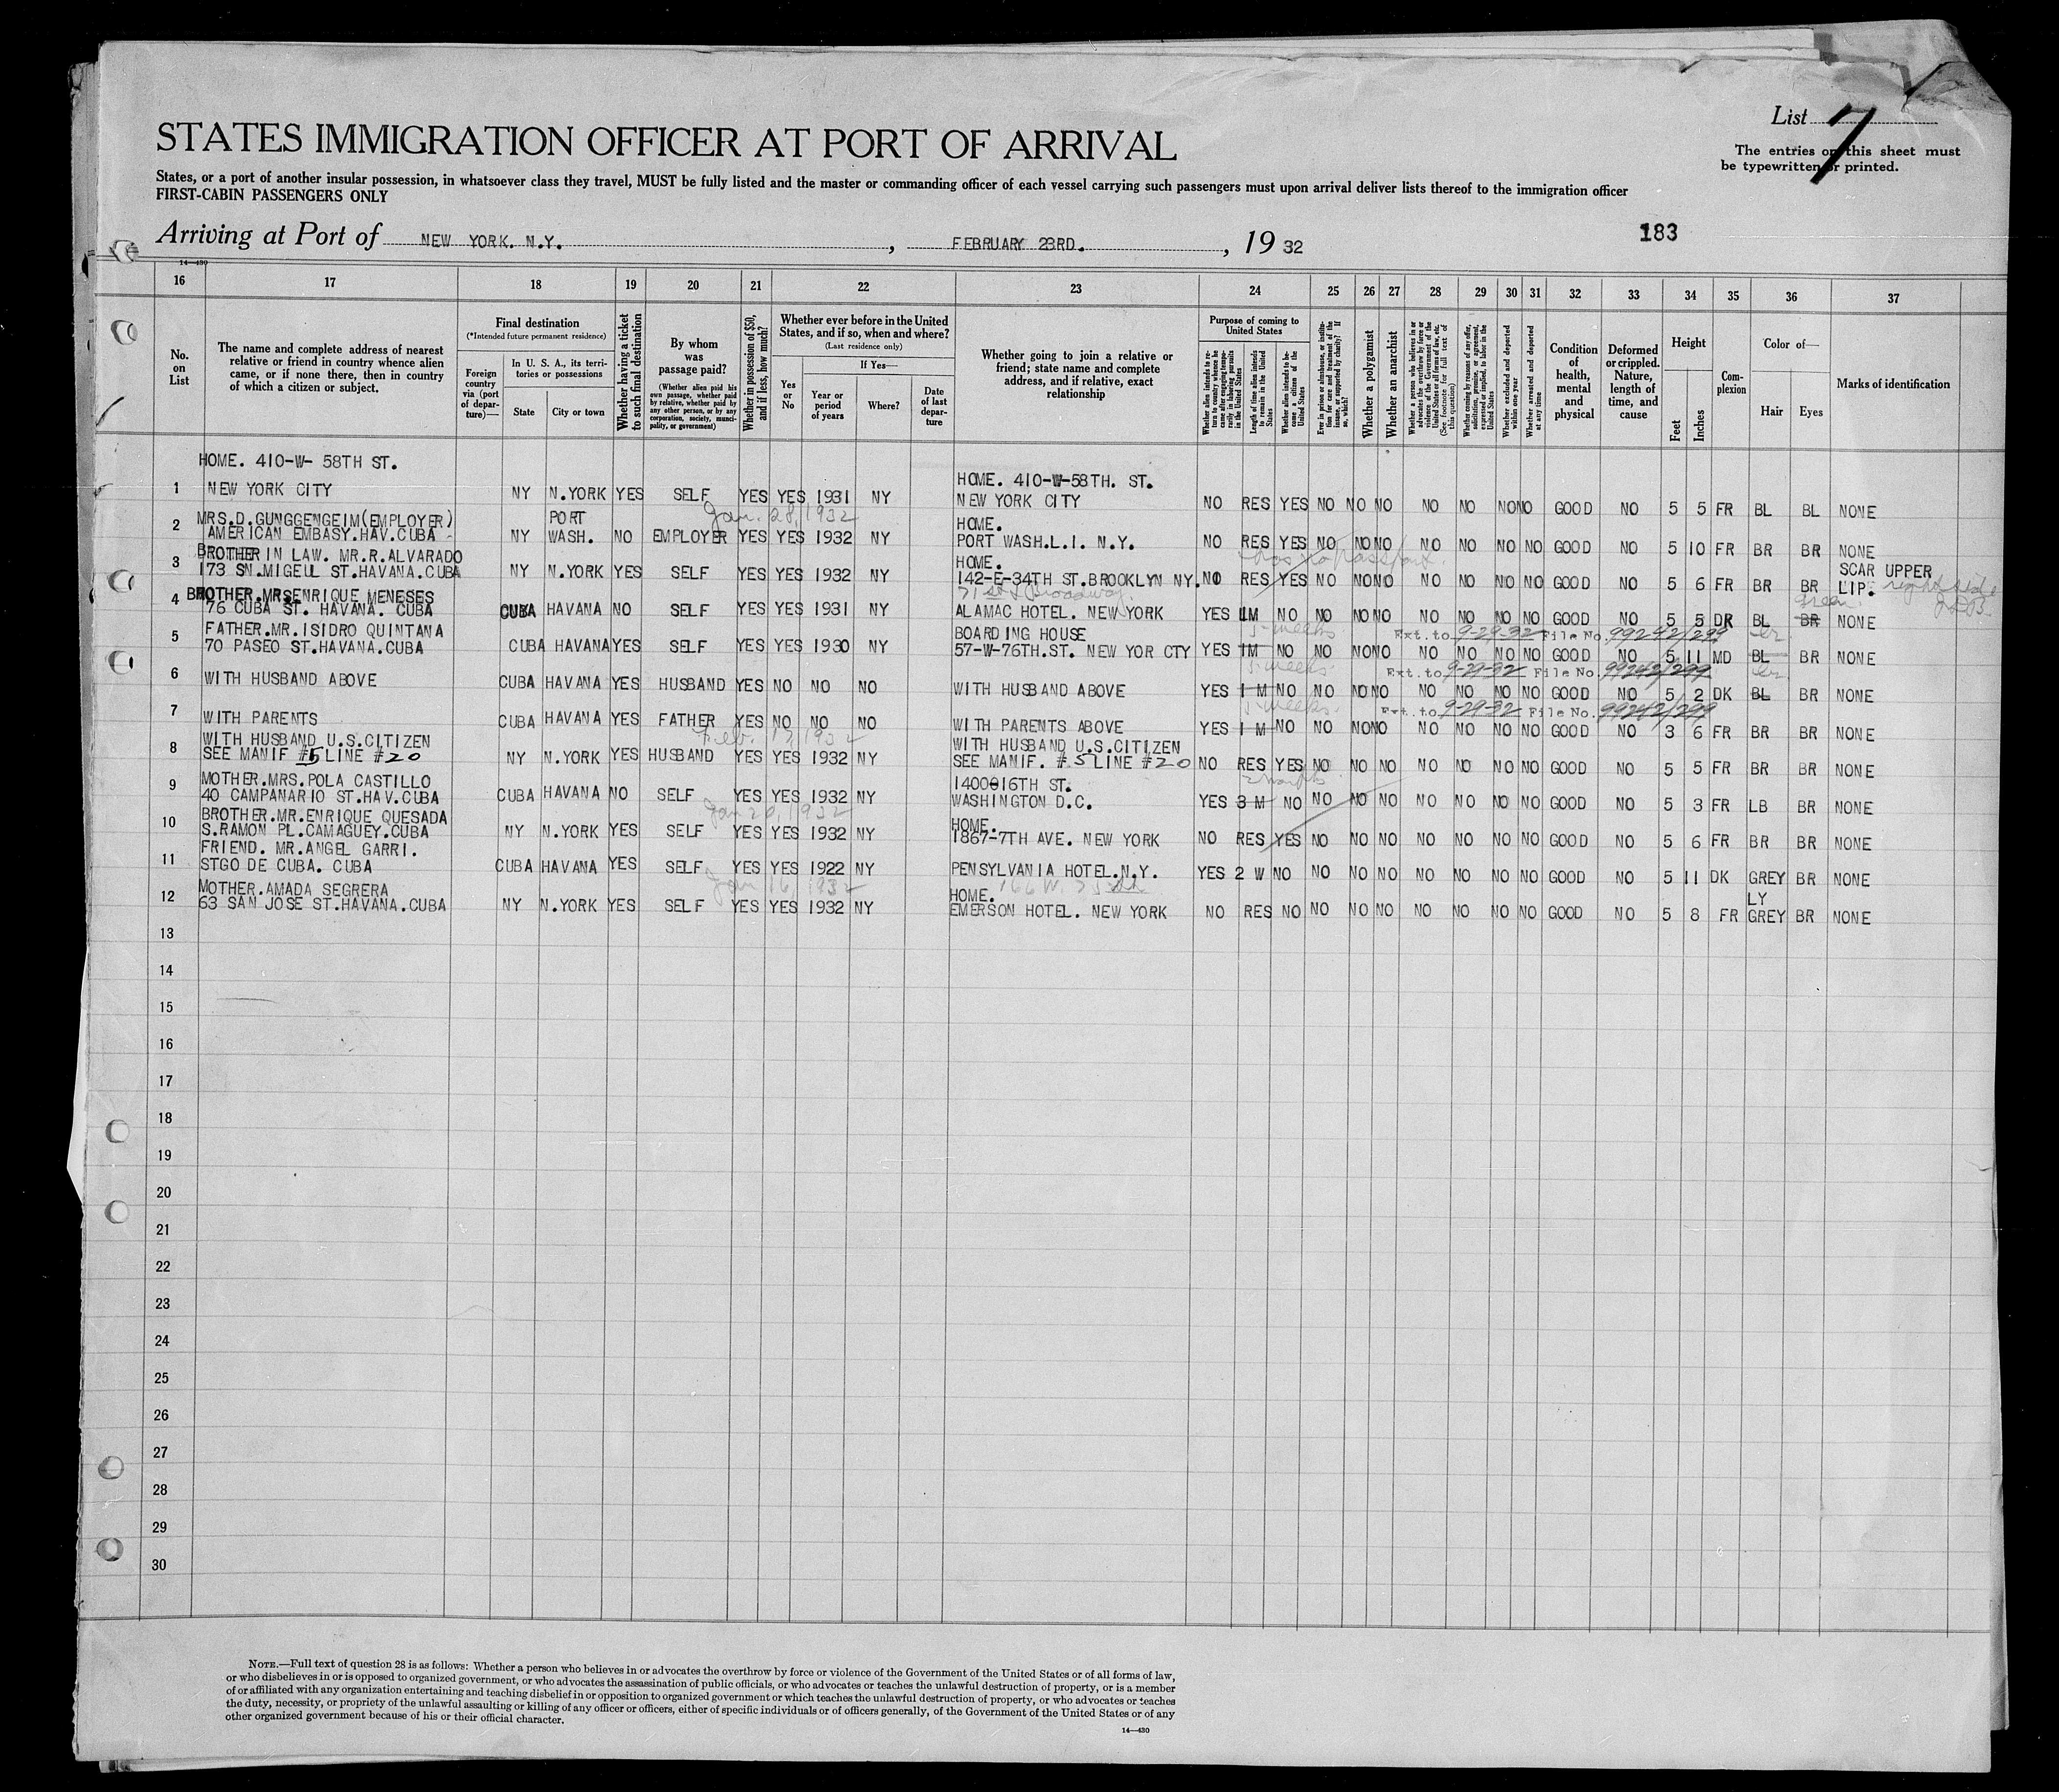 List 7
STATES IMMIGRATION OFFICER AT PORT OF ARRIVAL
The entries on this sheet must
be typewritten or printed.
States, or a port of another insular possession, in whatsoever class they travel, MUST be fully listed and the master or commanding officer of each vessel carrying such passengers must upon arrival deliver lists thereof to the immigration officer
FIRST-CABIN PASSENGERS ONLY
Arriving at Port of NEW YORK. N.Y. , FEBRUARY 23RD. , 19 32
183
14—430
16 17 18 19 20 21 22 23 24 25 26 27 28 29 30 31 32 33 34 35 36 37
No. on List
The name and complete address of nearest relative or friend in country whence alien came, or if none there, then in country of which a citizen or subject.
Final destination
(*Intended future permanent residence)
Foreign country via (port of departure)—
In U. S. A., its territories or possessions
State
City or town
Whether having a ticket to such final destination
By whom was passage paid?
(Whether alien paid his own passage, whether paid by relative, whether paid by any other person, or by any corporation, society, municipality, or government)
Whether in possession of $50, and if less, how much?
Whether ever before in the United States, and if so, when and where?
(Last residence only)
Yes or No
If Yes—
Year or period of years
Where?
Date of last departure
Whether going to join a relative or friend; state name and complete address, and if relative, exact relationship
Purpose of coming to United States
Whether alien intends to return to country whence he came after engaging temporarily in laboring pursuits in the United States
Length of time alien intends to remain in the United States
Whether alien intends to become a citizen of the United States
Ever in prison or almshouse, or institution for care and treatment of the insane, or supported by charity? If so, which?
Whether a polygamist
Whether an anarchist
Whether a person who believes in or advocates the overthrow by force or violence of the Government of the United States or all forms of law, etc. (See footnote for full text of this question)
Whether coming by reasons of any offer, solicitation, promise, or agreement, expressed or implied, to labor in the United States
Whether excluded and deported within one year
Whether arrested and deported at any time
Condition of health, mental and physical
Deformed or crippled. Nature, length of time, and cause
Height
Feet
Inches
Complexion
Color of—
Hair
Eyes
Marks of identification
HOME. 410-W- 58TH ST. HOME. 410-W-58TH. ST.
1 NEW YORK CITY NY N.YORK YES SELF YES YES 1931 NY NEW YORK CITY NO RES YES NO NO NO NO NO NO NO GOOD NO 5 5 FR BL BL NONE
Jan. 28, 1932
2 MRS.D.GUNGGENGEIM(EMPLOYER) PORT HOME.
AMERICAN EMBASY.HAV.CUBA NY WASH. NO EMPLOYER YES YES 1932 NY PORT WASH.L.I. N.Y. NO RES YES NO NO NO NO NO NO NO GOOD NO 5 10 FR BR BR NONE
3 BROTHER IN LAW. MR.R.ALVARADO HOME. SCAR UPPER
173 SN.MIGEUL ST.HAVANA.CUBA NY N.YORK YES SELF YES YES 1932 NY 142-E-34TH ST.BROOKLYN NY. NO RES YES NO NO NO NO NO NO NO GOOD NO 5 6 FR BR BR LIP. right side
71st & Broadway. green
4 BROTHER.MRSENRIQUE MENESES
76 CUBA ST. HAVANA. CUBA CUBA HAVANA NO SELF YES YES 1931 NY ALAMAC HOTEL. NEW YORK YES 1M NO NO NO NO NO NO NO NO GOOD NO 5 5 DR BL BR NONE
5 weeks Ext. to 9-29-32 File No. 99242/299
5 FATHER.MR.ISIDRO QUINTANA BOARDING HOUSE
70 PASEO ST.HAVANA.CUBA CUBA HAVANA YES SELF YES YES 1930 NY 57-W-76TH.ST. NEW YOR CTY YES 1M NO NO NO NO NO NO NO NO GOOD NO 5 11 MD BL BR NONE
5 weeks. Ext. to 9-29-32 File No. 99242/299
6 WITH HUSBAND ABOVE CUBA HAVANA YES HUSBAND YES NO NO NO WITH HUSBAND ABOVE YES 1 M NO NO NO NO NO NO NO NO GOOD NO 5 2 DK BL BR NONE
5 weeks. Ext. to 9-29-32 File No. 99242/299
7 WITH PARENTS CUBA HAVANA YES FATHER YES NO NO NO WITH PARENTS ABOVE YES 1 M NO NO NO NO NO NO NO NO GOOD NO 3 6 FR BR BR NONE
Feb. 17, 1932
8 WITH HUSBAND U.S.CITIZEN WITH HUSBAND U.S.CITIZEN
SEE MANIF #5 LINE #20 NY N.YORK YES HUSBAND YES YES 1932 NY SEE MANIF. #5 LINE #20 NO RES YES NO NO NO NO NO NO NO GOOD NO 5 5 FR BR BR NONE
9 MOTHER.MRS.POLA CASTILLO 1400016TH ST.
40 CAMPANARIO ST.HAV.CUBA CUBA HAVANA NO SELF YES YES 1932 NY WASHINGTON D.C. YES 3 M NO NO NO NO NO NO NO NO GOOD NO 5 3 FR LB BR NONE
Jan 20, 1932
10 BROTHER.MR.ENRIQUE QUESADA HOME.
S.RAMON PL.CAMAGUEY.CUBA NY N.YORK YES SELF YES YES 1932 NY 1867-7TH AVE. NEW YORK NO RES YES NO NO NO NO NO NO NO GOOD NO 5 6 FR BR BR NONE
FRIEND. MR.ANGEL GARRI.
11 STGO DE CUBA. CUBA CUBA HAVANA YES SELF YES YES 1922 NY PENSYLVANIA HOTEL.N.Y. YES 2 W NO NO NO NO NO NO NO NO GOOD NO 5 11 DK GREY BR NONE
Jan 16, 1932
12 MOTHER.AMADA SEGRERA HOME. LY
63 SAN JOSE ST.HAVANA.CUBA NY N.YORK YES SELF YES YES 1932 NY EMERSON HOTEL. NEW YORK NO RES NO NO NO NO NO NO NO NO GOOD NO 5 8 FR GREY BR NONE
13
14
15
16
17
18
19
20
21
22
23
24
25
26
27
28
29
30
NOTE.—Full text of question 28 is as follows: Whether a person who believes in or advocates the overthrow by force or violence of the Government of the United States or of all forms of law,
or who disbelieves in or is opposed to organized government, or who advocates the assassination of public officials, or who advocates or teaches the unlawful destruction of property, or is a member
of or affiliated with any organization entertaining and teaching disbelief in or opposition to organized government or which teaches the unlawful destruction of property, or who advocates or teaches
the duty, necessity, or propriety of the unlawful assaulting or killing of any officer or officers, either of specific individuals or of officers generally, of the Government of the United States or of any
other organized government because of his or their official character.
14—430